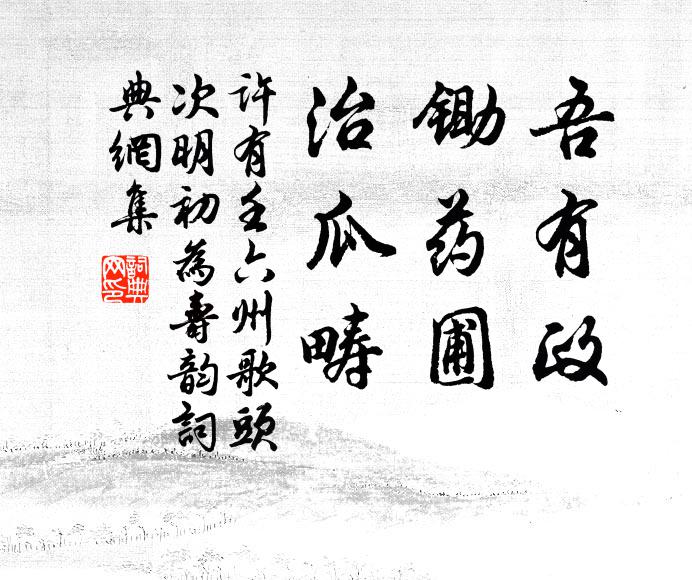 吾有政
鋤药圃
治瓜畴
许有壬六州歌頭
次明初為壽韵詞
典網集
詞典网印